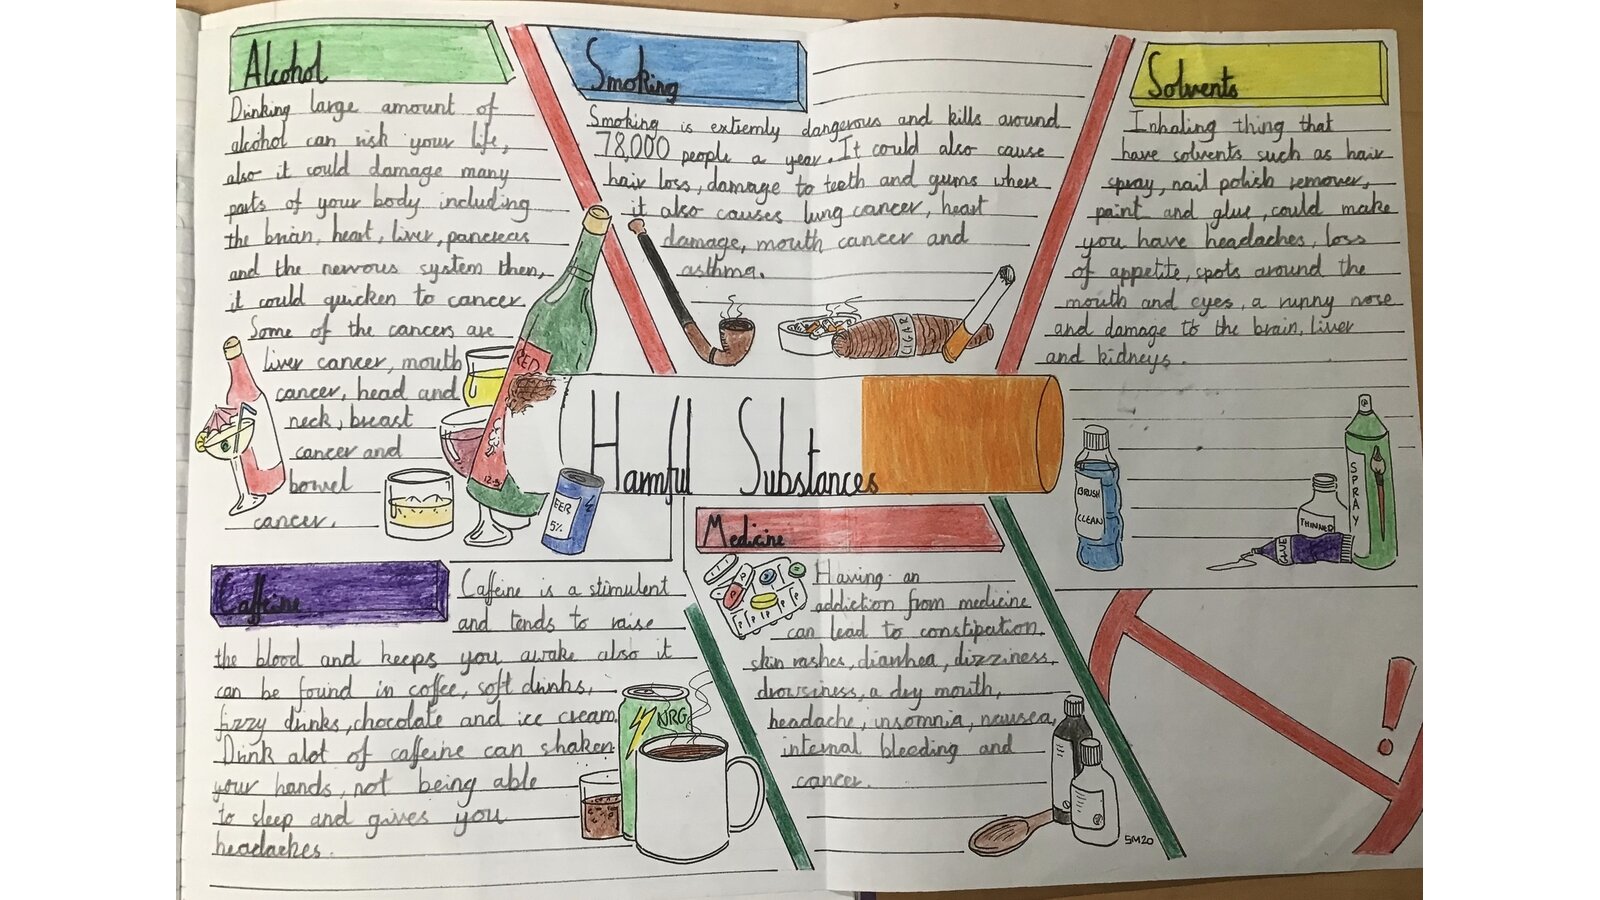 Alcohol
Drinking large amount of
alcohol can risk your life,
also it could damage many
parts of your body including
the brian, heart, liver, pancreas
and the nervous system then,
it could quicken to cancer.
Some of the cancers are
liver cancer, mouth
cancer, head and
neck, breast
cancer and
bowel
cancer.
RED
12.5
EER
5%
Smoking
Smoking is extremly dangerous and kills around
78,000 people a year. It could also cause
hair loss, damage to teeth and gums where
it also causes lung cancer, heart
damage, mouth cancer and
asthma.
CIGAR
Solvents
Inhaling thing that
have solvents such as hair
spray, nail polish remover,
paint and glue, could make
you have headaches, loss
of appetite, spots around the
mouth and eyes, a runny nose
and damage to the brain, liver
and kidneys.
BRUSH
CLEAN
THINNER
GLUE
SPRAY
Harmful Substances
Caffeine
Caffeine is a stimulent
and tends to raise
the blood and keeps you awake also it
can be found in coffee, soft drinks,
fizzy drinks, chocolate and ice cream.
Drink alot of caffeine can shaken
your hands, not being able
to sleep and gives you
headaches.
NRG
Medicine
Having an
addiction from medicine
can lead to constipation,
skin rashes, diarrhea, dizziness,
drowsiness, a dry mouth,
headache, insomnia, nausea,
internal bleeding and
cancer.
SM20
!